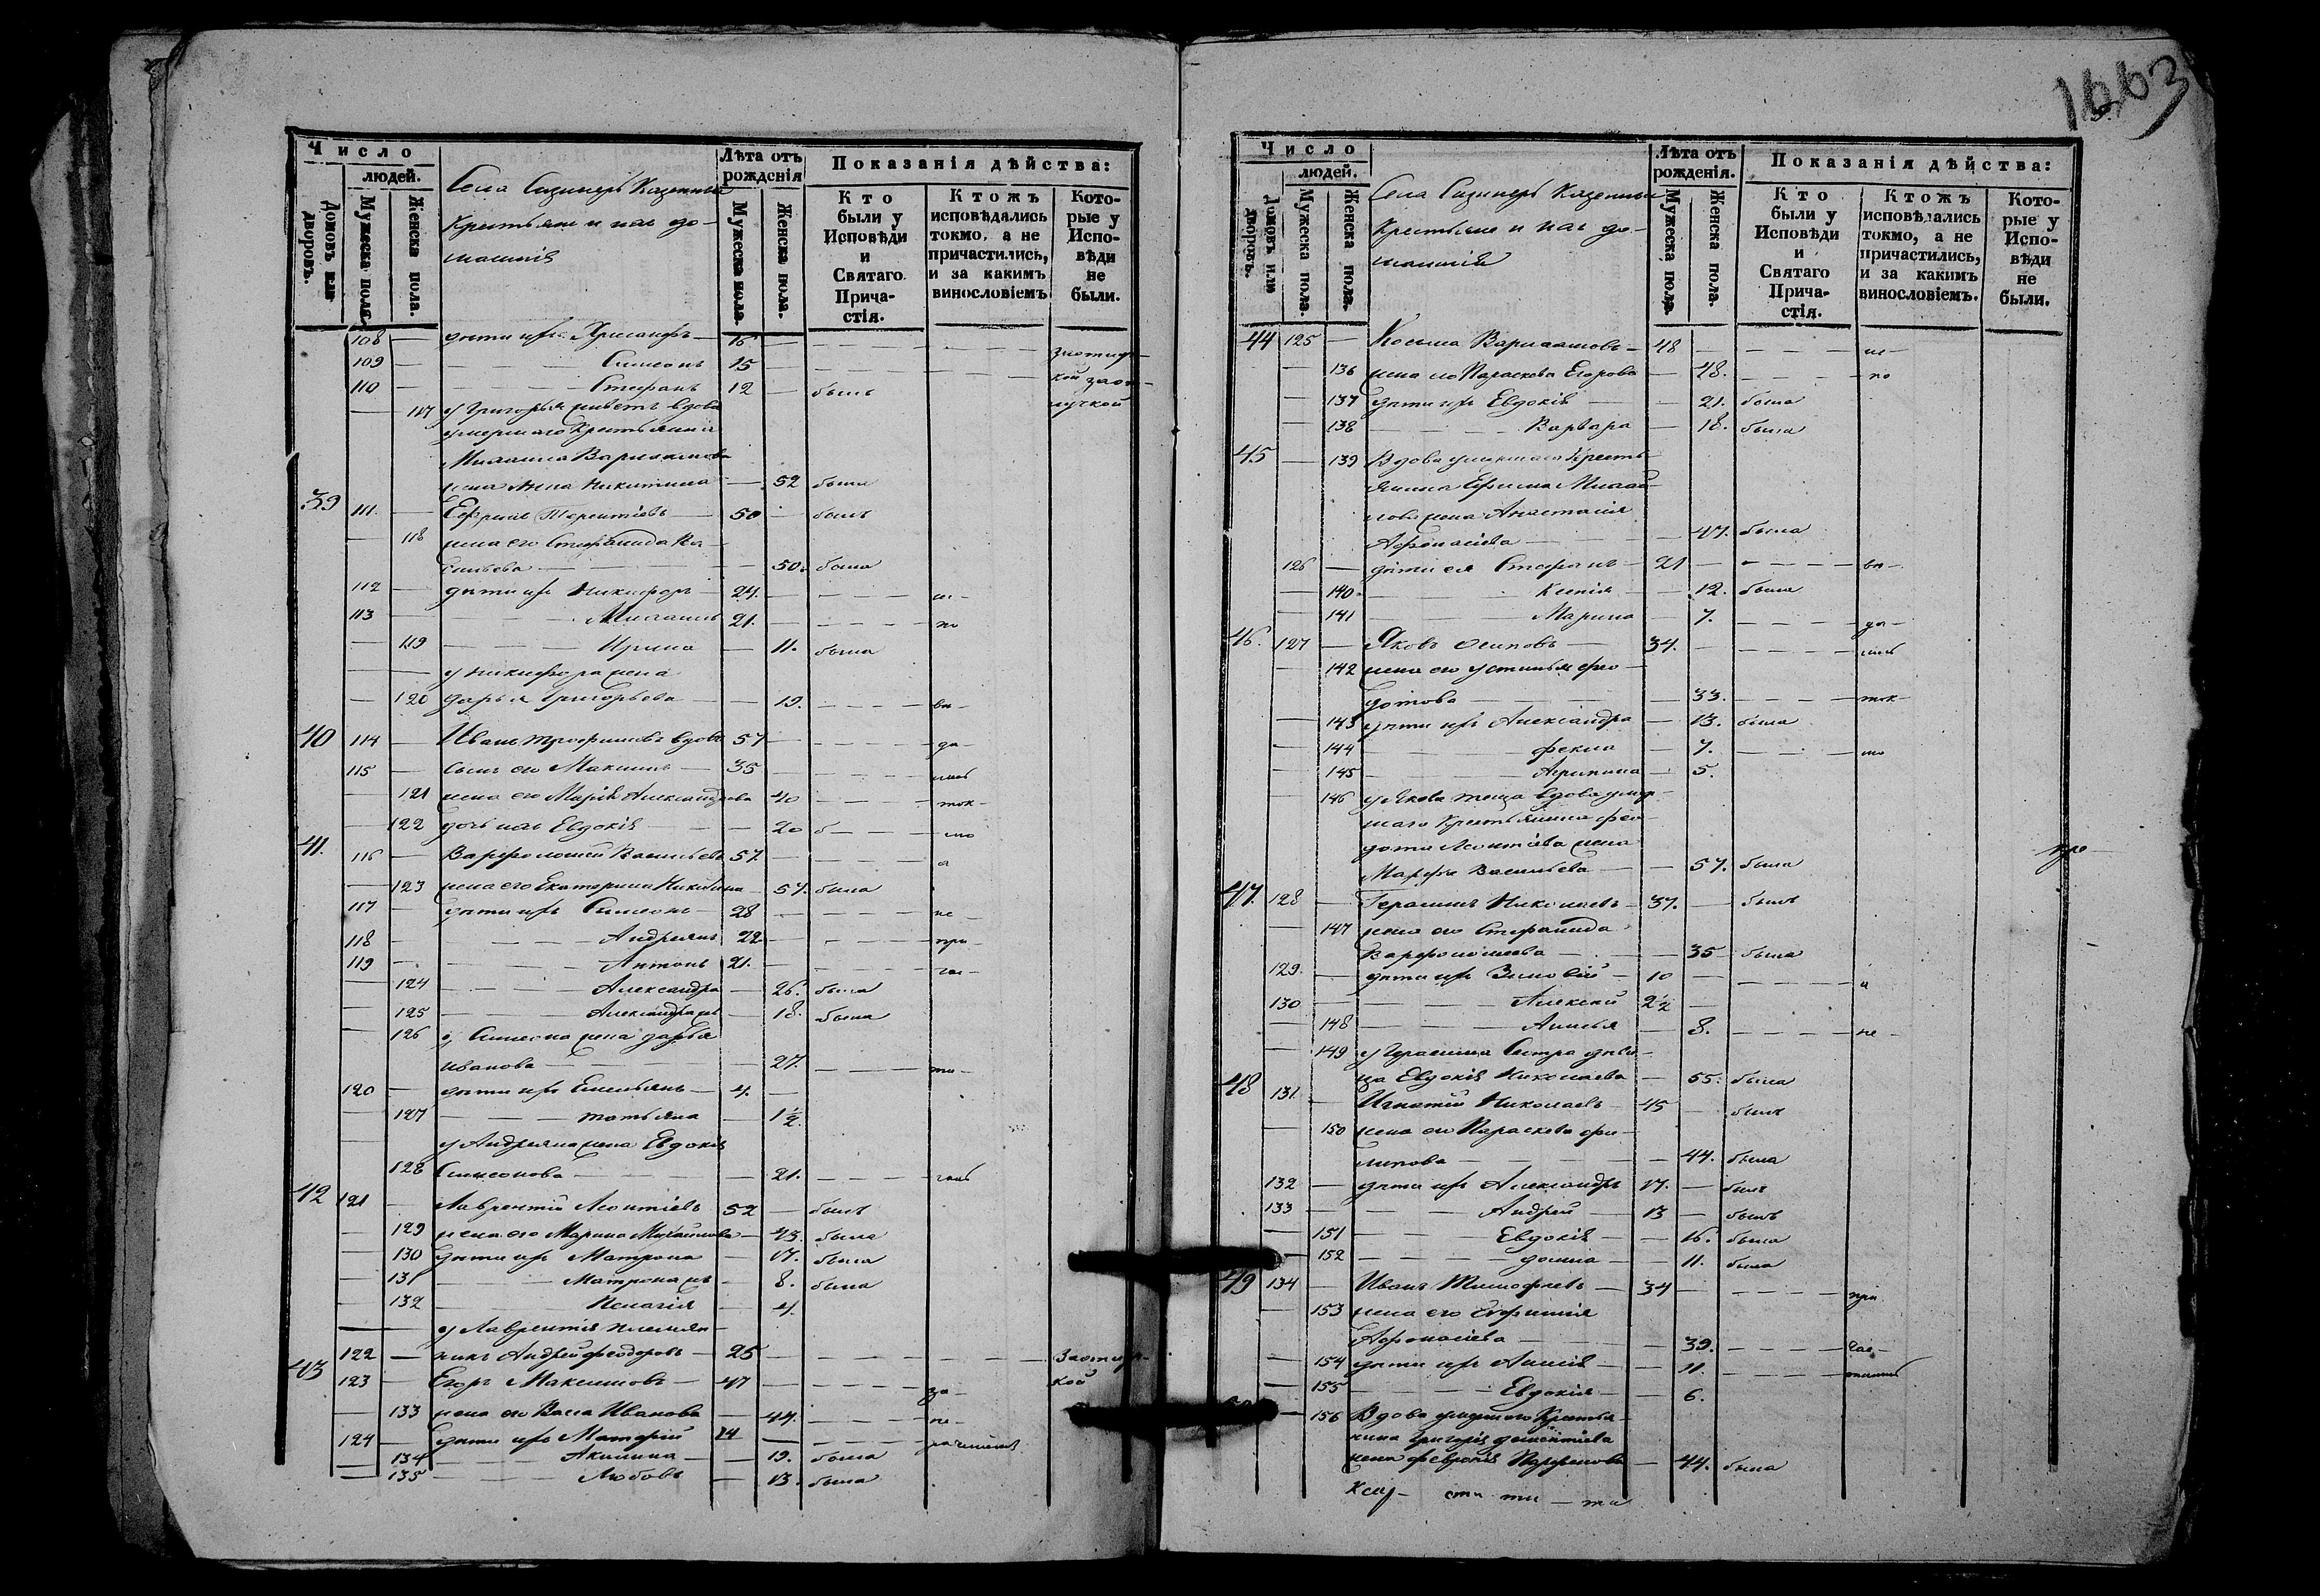 1663
Число
людей.
Домовъ или дворовъ.
Мужеска пола.
Женска пола.
Села Казенные
Крестьяне и ихъ до-
машнія
Лѣта отъ рожденія
Мужеска пола.
Женска пола.
Показанія дѣйства:
Кто были у Исповѣди и Святаго Прича-стія.
Ктожъ исповѣдались токмо, а не причастились, и за какимъ винословіемъ
Кото-рые у Испо-вѣди не были.
108 — дѣти ихъ Хрисанфъ — 16 —
109 — Симеонъ 15 —
110 — Стефанъ 12 — былъ
— 117 у Григорья живетъ вдова
умершаго Крестьянина
Михаила Варлаамова
жена Анна Никитина — 52 была
39 111. — Ефремъ Терентіевъ — 50 — былъ
— 118 жена его Стефанида Ва-
сильева — 50. была
112 — дѣти ихъ Никифоръ — 24. — не-
113 — Михаилъ 21. — по
— 119 Ирина — 11. была
у Никифора жена
— 120 Дарья Григорьева — 19. — вѣ-
40 114 — Иванъ Трофимовъ вдовъ 57 — да-
115 — сынъ его Максимъ — 35 — лись
— 121 жена его Марія Александрова 40 — ток-
— 122 дочь ихъ Евдокія — 20 б — мо
41. 116 — Варфоломей Васильевъ 57. — а
— 123 жена его Екатерина — 57. была
117 — дѣти ихъ Симеонъ — 28 — не-
118 — Андреянъ 22 — при-
119 — Антонъ 21. — час-
— 124 Александра — 26. была
— 125 Александра — 18. была
— 126 у Симеона жена Дарья
Иванова — 27. — ти-
120 — дѣти ихъ Емельянъ — 4. —
— 127 Татьяна — 1½
у Андреяна жена Евдокія
— 128 Симеонова — 21. —
42 121 — Лаврентій Леонтіевъ 52 — былъ
— 129 жена его Марина Михайлова — 43. была
— 130 дѣти ихъ Матрона — 17. была
— 131 Матрона — 8. была
— 132 Пелагія — 4.
у Лаврентія племян-
122 — никъ Андрей Феодоровъ — 25 —
43 123 — Егоръ Максимовъ — 47 — за-
— 133 жена его Васса Иванова — 44. — не-
124 — дѣти ихъ Матфей 14 —
— 134 Акилина — 19. была
— 135 Любовь — 13. была
Число
людей.
Домовъ или дворовъ.
Мужеска пола.
Женска пола.
Села Казенные
Крестьяне и ихъ до-
машнія
Лѣта отъ рожденія.
Мужеска пола.
Женска пола.
Показанія дѣйства:
Кто были у Исповѣди и Святаго Прича-стія.
Ктожъ исповѣдались токмо, а не причастились, и за какимъ винословіемъ.
Кото-рые у Испо-вѣди не были.
44 125 — Косьма Варлаамовъ — 48 — ис-
136 жена его Параскева Егорова — 48. — по
— 137 дѣти ихъ Евдокія — 21. была
— 138 Варвара — 18. была
45 — 139 Вдова умершаго Кресть-
янина Ефима Михай-
лова жена Анастасія
Афонасіева — 47. была
126 — дѣти ея Стефанъ — 21 — вѣ-
— 140 Ксенія — 12. была
— 141 Марина — 7. — да-
46. 127 — Яковъ Осиповъ — 34. — лись
— 142 жена его Устинья Фео-
дотова — 33. — ток-
— 143 дѣти ихъ Александра — 13. была
— 144 Фекла — 7. — мо
— 145 Агрипина — 5.
— 146 у Якова теща вдова умер-
шаго Крестьянина Фео-
дота Леонтіева жена
Марфа Васильева — 57. была
47. 128 — Герасимъ Николаевъ — 37. — былъ
— 147 жена его Стефанида
Варфоломеева — 35 была
129. — дѣти ихъ Зиновій — 10 — и
130 — Алексей 2½ —
— 148 Анисья — 8. — не-
— 149 у Герасима сестра дѣви-
ца Евдокія Николаева — 55. была
48 131. — Игнатій Николаевъ — 45 — былъ
— 150 жена его Параскева Фи-
липова — 44. была
132 — дѣти ихъ Александръ 17. — былъ
133 — Андрей 13 — былъ
— 151 Евдокія — 16. была
— 152 Домна — 11. была
49 134 — Иванъ Тимофеевъ — 34 — при
— 153 жена его Евфимія
Афонасіева — 39. — час-
— 154 дѣти ихъ Анисія — 11. —
— 155 Евдокія — 6.
— 156 Вдова умершаго Крестья-
нина Григорія Дементіева
жена Февронія Парфенова — 44. была